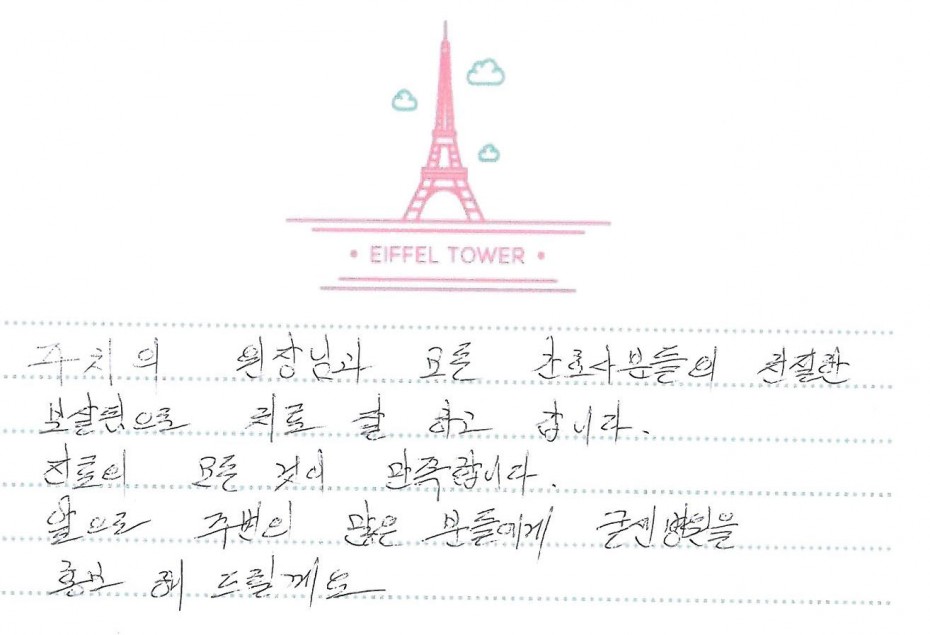 • EIFFEL TOWER •
주치의 원장님과 모든 간호사분들의 친절한
보살핌으로 치료 잘 하고 갑니다.
진료의 모든 것이 만족합니다.
앞으로 주변인 많은 분들에게 굳센병원을
홍보 해 드릴게요